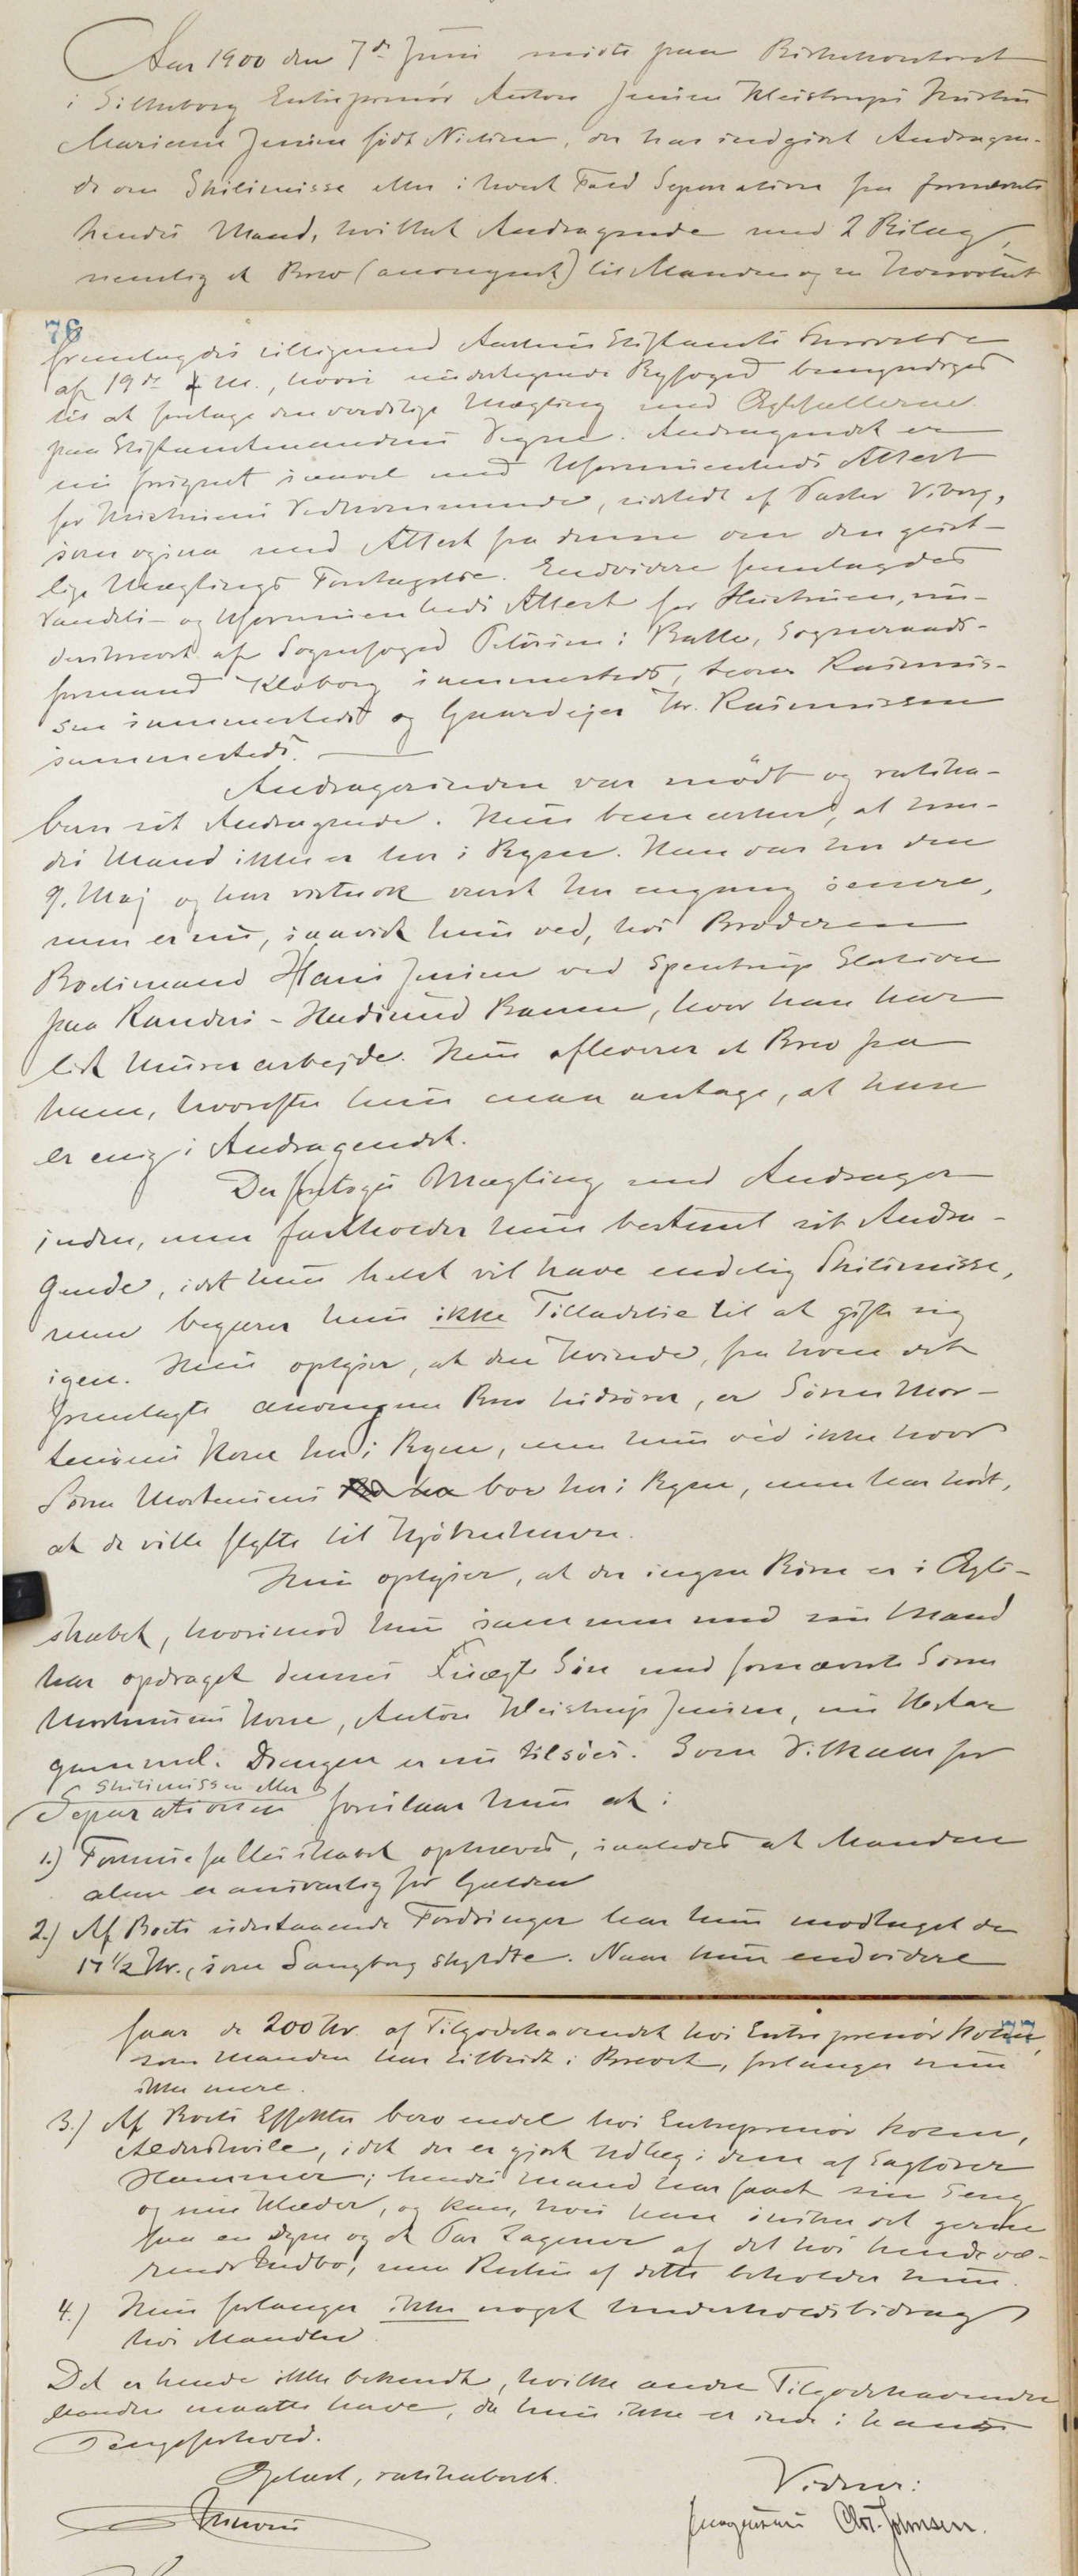 Aar 1900 den 7de Juni mødte paa Birkekontoret
i Silkeborg Entreprenør Anton Jensen Kleistrups Hustru
Mariane Jensen født Nielsen, der har indgivet Andragen-
de om Skilsmisse eller i hvert Fald Separation fra fornævnte
hendes Mand, hvilket Andragende med 2 Bilag,
nemlig et Brev (anonymt) til Manden og en
76
fremlagdes tilligemed Aarhus Stiftamts Skrivelse
af 19de f. M., hvori undertegnede Byfoged bemyndiges
til at foretage den verdslige Mægling med Ægtefællerne
paa Stiftamtmandens Vegne. Andragendet er
nu forsynet saavel med Uformuenheds Attest
for Hustruens Vedkommende, udstedt af Pastor Viborg,
som ogsaa med Attest fra denne om den geist-
lige Mæglings Foretagelse. Endvidere fremlagdes
Vandels- og Uformuenheds Attest for Hustruen, un-
derskrevet af Sognefoged Petersen i Balle, Sogneraads-
formand Kloborg sammesteds, Rasmus-
sen sammesteds og Gaardejer Chr. Rasmussen
sammesteds.
Andragerinden var mødt og ratiha-
berer sit Andragende. Hun bemærker, at hen-
des Mand ikke er her i Byen. Han var her den
9. Maj og har vistnok været her engang senere,
men er nu, saavidt hun ved, hos Broderen
Boelsmand Hans Jensen ved Spentrup Station
paa Randers-Hadsund Banen, hvor han har
lidt Murerarbejde. Hun afleverer et Brev fra
ham, hvorefter hun maa antage, at han
er enig i Andragendet.
Der foretoges Mægling med Andrager
inden, men fastholder hun bestemt sit Andra-
gende, idet hun helst vil have endelig Skilsmisse,
men begærer hun ikke Tilladelse til at gifte sig
igen. Hun oplyser, at den Kvinde, fra hvem det
fremlagte anonyme Brev hidrører, er Søren Mor-
tensens Kone her i Byen, men hun véd ikke hvor
Søren Mortensens bor her i Byen, men har hørt,
at de ville flytte til Kjøbenhavn.
Hun oplyser, at der ingen Børn er i Ægte-
skabet, hvorimod hun sammen med sin Mand
har opdraget dennes Uægte Søn med fornævnte Søren
Mortensens Kone, Anton Kleistrup Jensen, nu Aar
gammel. Drengen er nu tilsøes. Som Vilkaar for
Skilsmissen eller
Separationen foreslaar hun at:
1.) Formuefællesskabet ophæves, saaledes at Manden
alene er ansvarlig for Gælden
2.) Af Boets udestaaende Fordringer har hun modtaget de
17 1/2 Kr., som Sangborg skyldte. Naar hun endvidere
77
faar de 200 Kr. af Tilgodehavendet hos Entreprenør Holm,
som Manden har tilbudt i Brevet, forlanger hun
ikke mere.
3.) Af Boets Effekter bero endel hos Entreprenør Holm,
Alderslyst, idet der er gjort Udlæg i dem af Sagfører
Hammer; hendes Mand har faaet sin Seng
og sine Klæder, og kan, hvis han ønsker det gerne
faa en Dyne og et Par Lagener af det hos hende væ-
rende Indbo, men Resten af dette beholder hun.
4.) Hun forlanger ikke noget Underholdsbidrag
hos Manden
Det er hende ikke bekendt, hvilke andre Tilgodehavender
Manden maatte have, da hun ikke er inde i hans
Pengeforhold.
Oplæst, ratihaberet.
Vidner:
Jørgensen Chr. Johnsen.